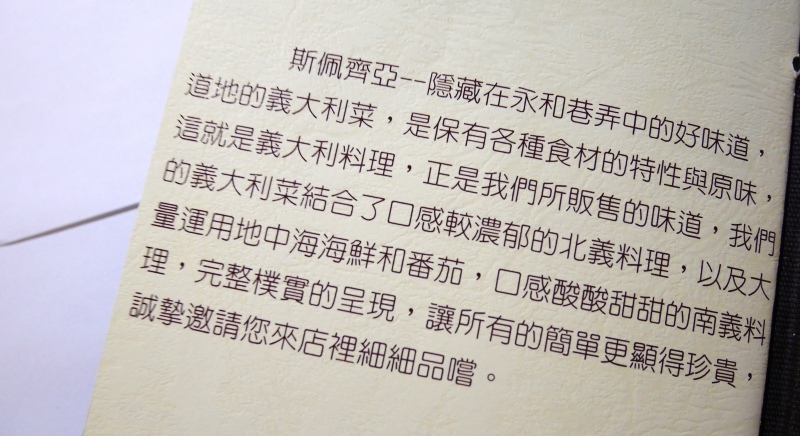 斯佩齊亞--隱藏在永和巷弄中的好味道，
道地的義大利菜，是保有各種食材的特性與原味，
這就是義大利料理，正是我們所販售的味道，我們
的義大利菜結合了口感較濃郁的北義料理，以及大
量運用地中海海鮮和番茄，口感酸酸甜甜的南義料
理，完整樸實的呈現，讓所有的簡單更顯得珍貴，
誠摯邀請您來店裡細細品嚐。